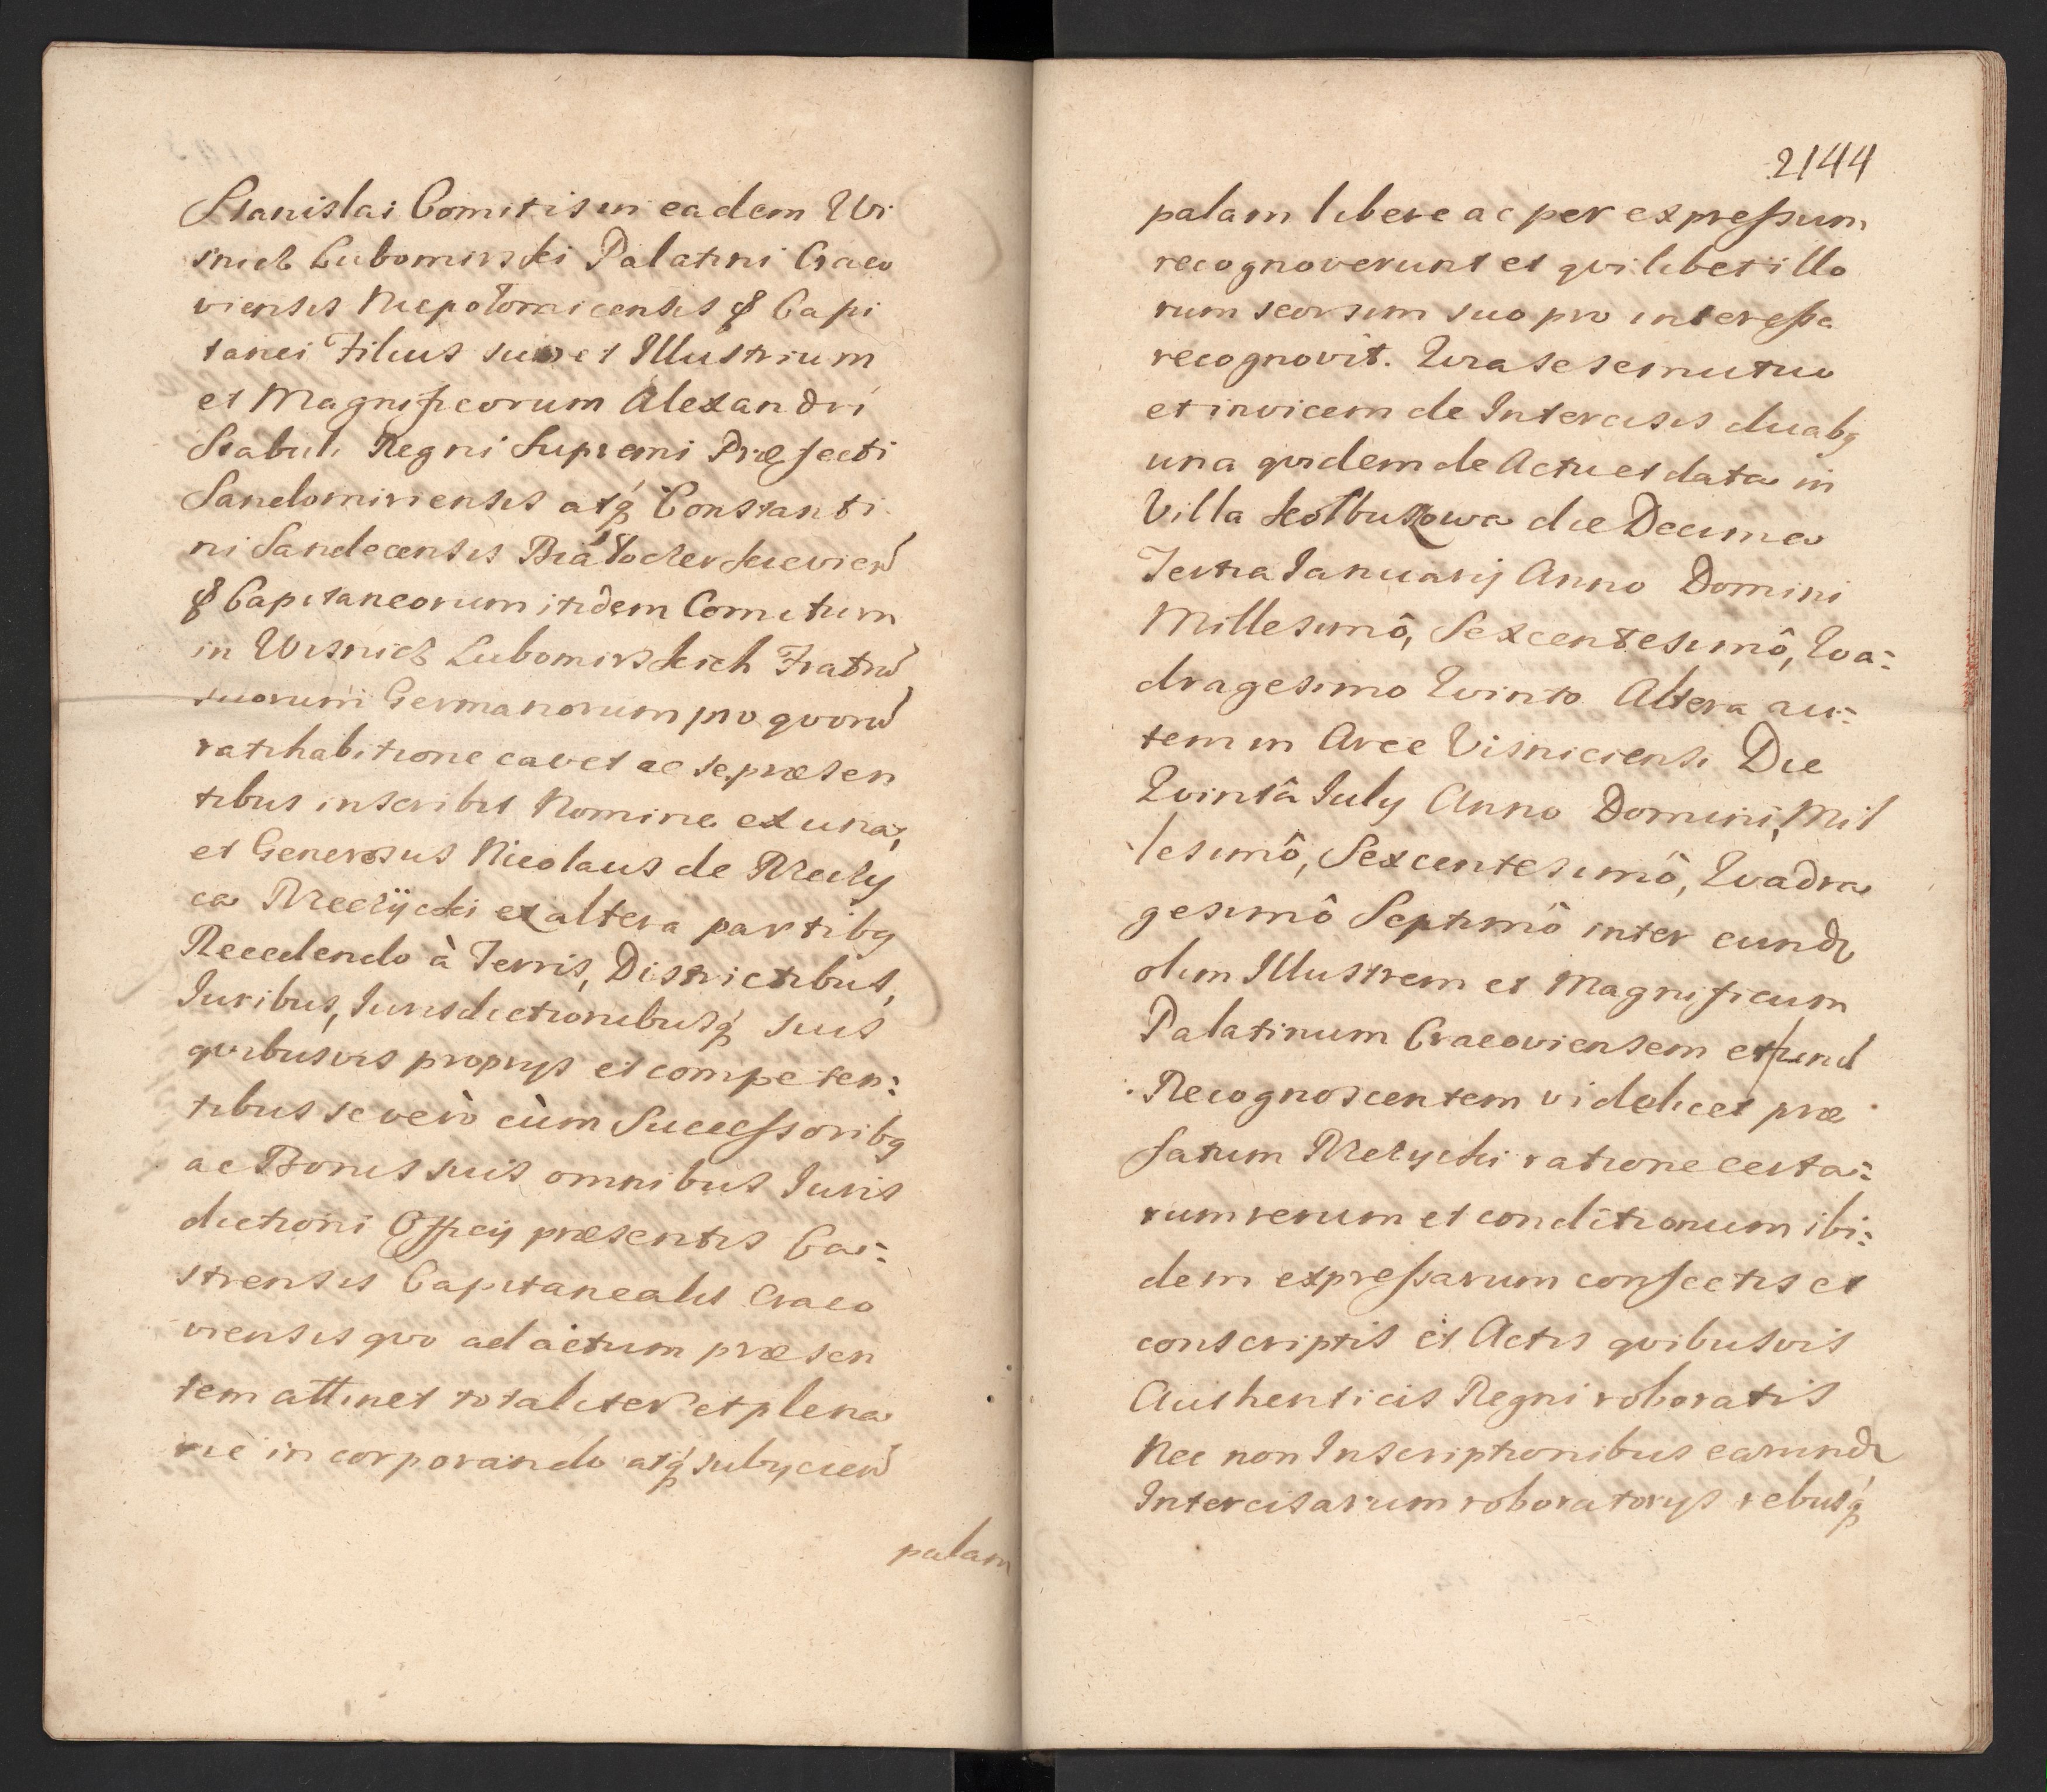 Stanislai Comitis in eadem Wi
snicz Lubomirski Palatini Craco
viensis Niepołomicensis & Capi
tanei Filius suo et Illustrium
et Magnificorum Alexandri
Stabuli Regni Supremi Præfecti
Sandomiriensis atq́ Constanti
ni Sandecensis Białocerkiewien̄
& Capitaneorum itidem Comitum
in Wisnicz Lubomirskich Fratrū
suorum Germanorum pro quorū
ratihabitione cavet ac se præsen
tibus inscribit Nomine ex una,
et Generosus Nicolaus de
ca ex altera partibq
Recedendo à Terris, Districtibus,
Iuribus, Iurisdictionibusq́ suis
quibusvis proprys et competen:
tibus se verò cùm Successoribq
ac Bonis suis omnibus Iuris
dictioni Officij præsentis Ca:
strensis Capitanealis Craco
viensis quo ad actum præsen
tem attinet totaliter et plena
rie incorporando atq́ subyciend̄
palam
2144
palam libere ac per expressum
recognoverunt et quilibet illo
rum seorsim suo pro interesse
recognovit. Quia sese mutuo
et invicem de Intercisis duabq
una quidem de Actu et data in
Villa Kolbuszowa die Decima
Tertia Ianuarij Anno Domini
Millesimô, Sexcentesimô, Qua:
dragesimo Quinto Altera au:
tem in Arce Visniciensi Die
Quintâ July Anno Domini, Mil
lesimô, Sexcentesimô, Quadra
gesimô Septimô inter eund
olim Illustrem et Magnificum
Palatinum Cracoviensem et und
Recognoscentem videlicet præ
fatum ratione certa:
rum rerum et conditionum ibi:
dem expressarum confectis et
conscriptis et Actis quibusvis
Authenticis Regni roboratis
Nec non Inscriptionibus earund
Intercisarum roboratorys rebusq́